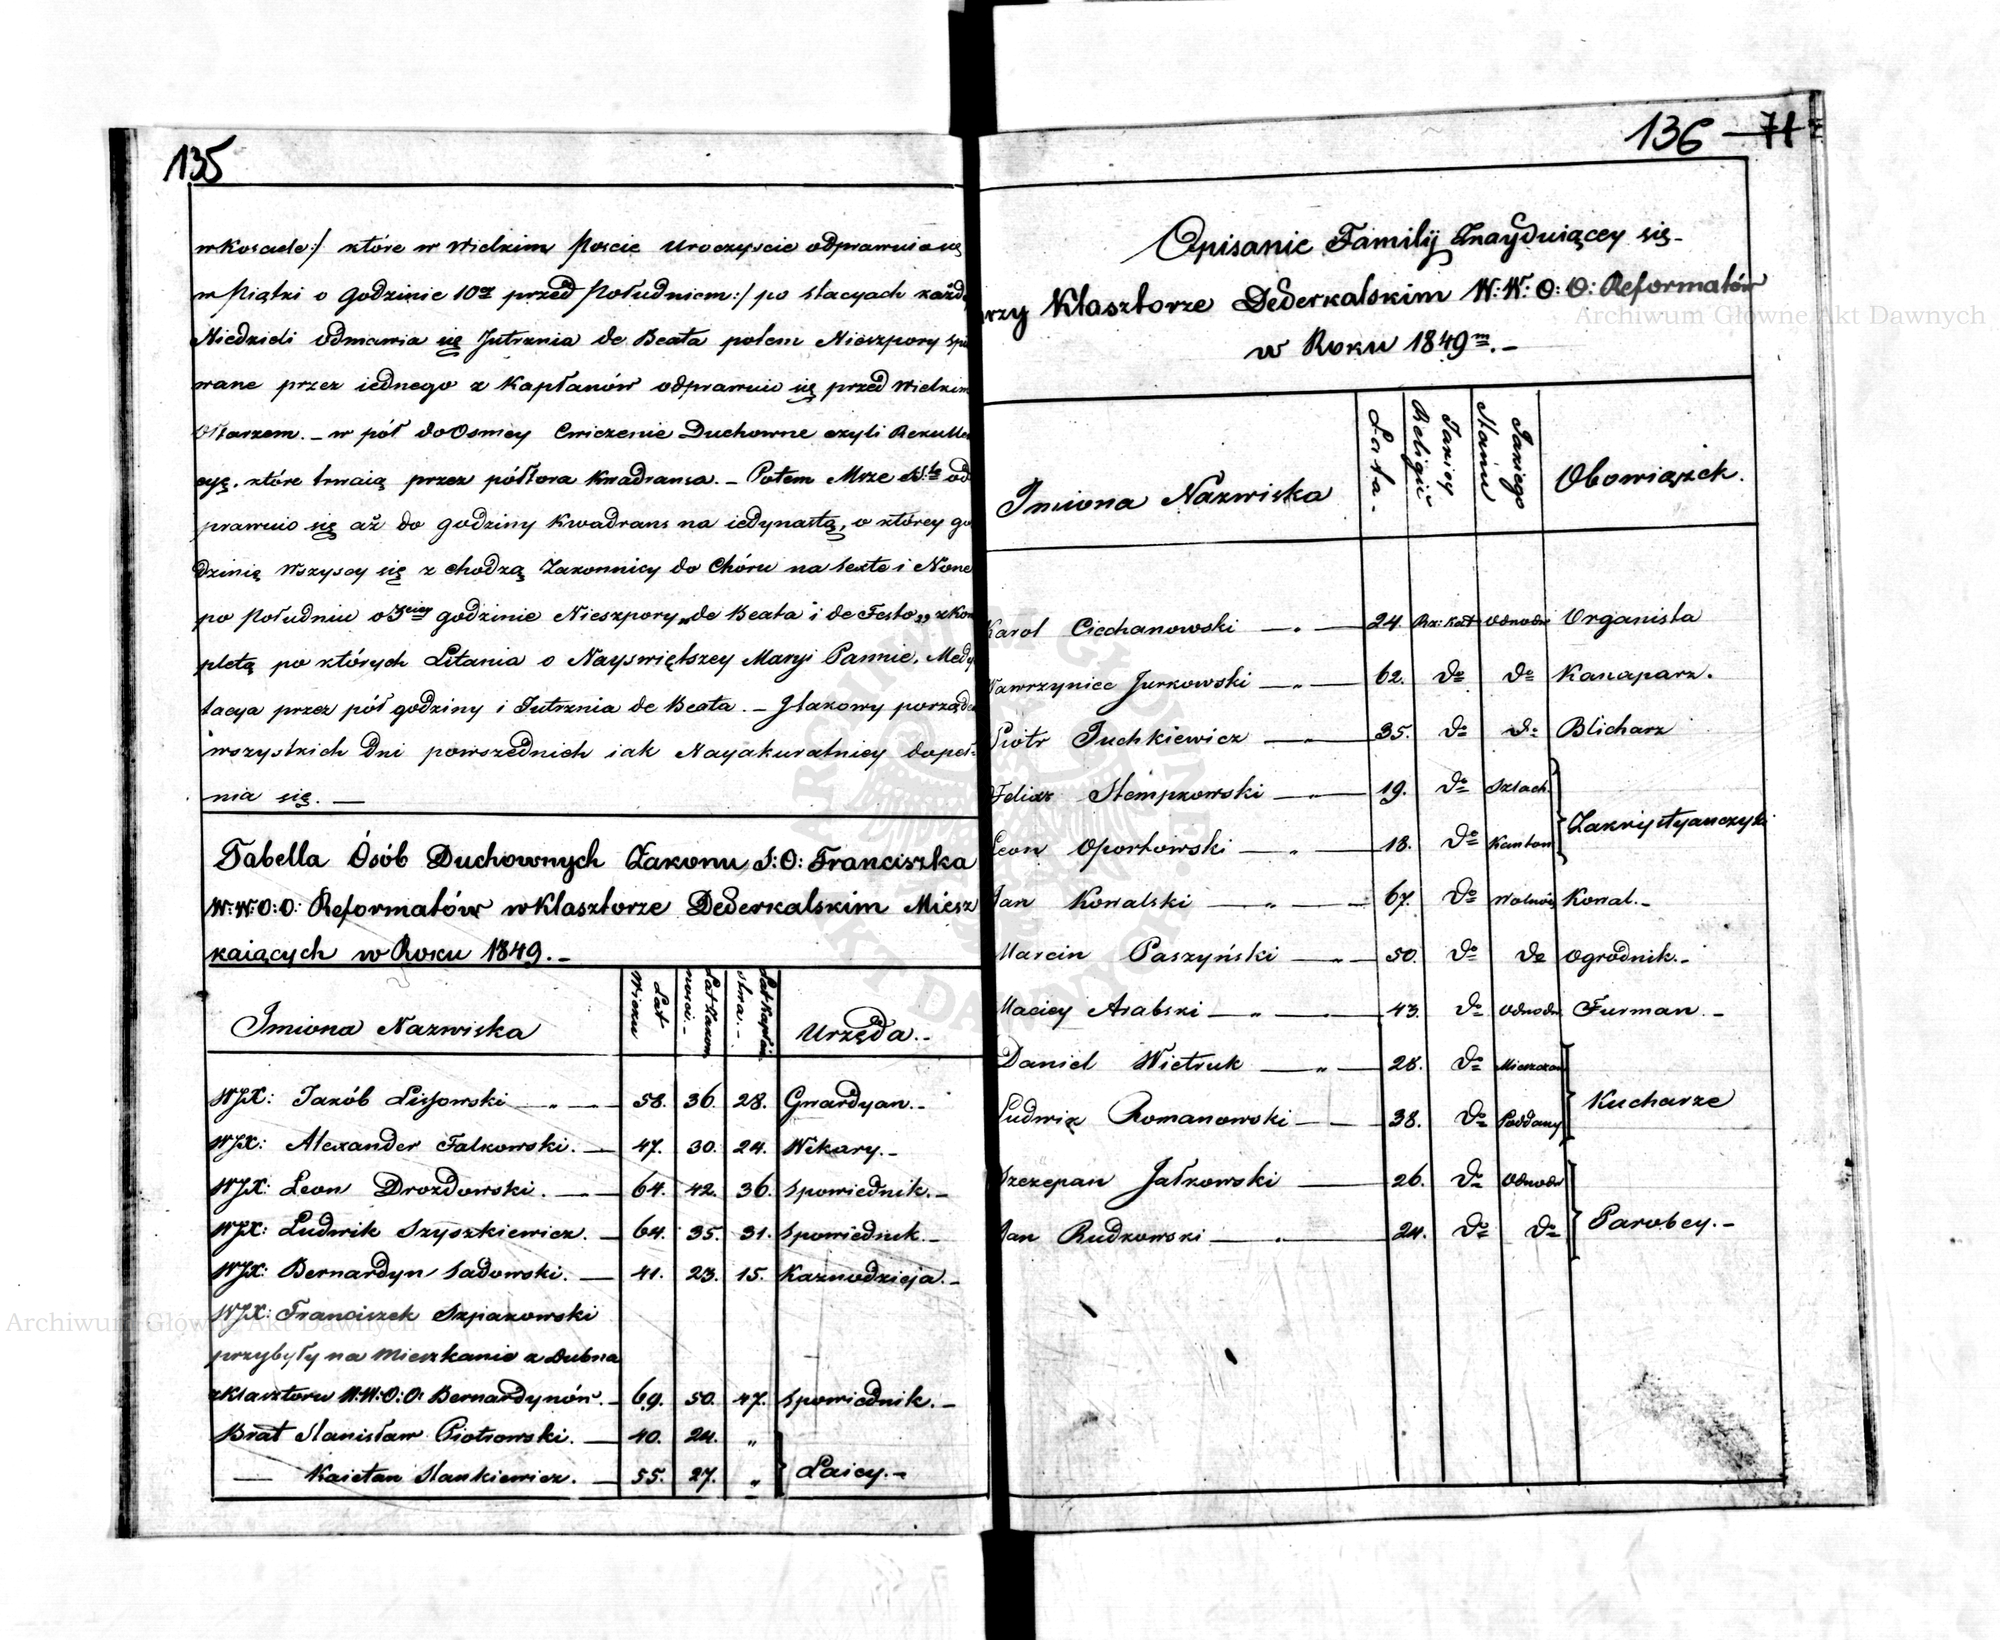 135
w Kosciele:/ które w Wielkim Poscie Uroczyscie odprawuio się
w Piątki o godzinie 10ej przed Południem:/ po stacyach każdej
Niedzieli odmawia się Jutrznia de Beata potem Nieszpory spie
wane przez iednego z Kapłanów odprawuio się przed Wielkim
Ołtarzem. – w pół do Osmey Cwiczenie Duchowne czyli Rekolle
cye, które trwaią przez półtora Kwadransa. – Potem Msze S.te od
prawuio się aż do godziny Kwadrans na iedynastą, o którey go
dzinię Wszyscy się z chodzą Zakonnicy do Chóru na Sexte i None
po Południu o 3ciey godzinie Nieszpory „de Beata i de Festo„ z Kom
pletą po których Litania o Nayswiętszey Maryi Pannie, Medy
tacya przez pół godziny i Jutrznia de Beata. – J takowy porządek
wszystkich Dni powszednich iak Nayakuratniey dopeł-
nia się. —
Tabella Osób Duchownych Zakonu S: O: Franciszka
W: W: O: O: Reformatów w Klasztorze Dederkalskim Miesz
kaiących w Roku 1849. –
Imiona Nazwiska Lat Wieku Lat Zakonności. – Lat Kapłaństwa. – Urzęda. –
WJX: Jakób Lisowski „ — 58. 36. 28. Gwardyan. –
WJX: Alexander Falkowski. — 47. 30. 24. Wikary. –
WJX: Leon Drozdowski. — 64. 42. 36. Spowiednik. –
WJX: Ludwik Szyszkiewicz. – 64. 35. 31. Spowiednik. –
WJX: Bernardyn Sadowski. — 41. 23. 15. Kaznodzieja. –
WJX: Franciszek Szpakowski
przybyły na Mieszkanie z Dubna
z Klasztoru W: W: O: O: Bernardynów. – 69. 50. 47. Spowiednik. –
Brat Stanisław Piotrowski. — 40. 24. „
— Kaietan Stankiewicz. — 55. 27. „ Laicy. –
136 – 71
Opisanie Familij Znayduiącey się –
przy Klasztorze Dederkalskim W: W: O: O: Reformatów
w Roku 1849m. –
Imiona Nazwiska Lata. Jakiey Religii Jakiego Stanu Obowiązek.
Karol Ciechanowski — „ — 24. Rz: Kat: Odnodw Organista
Wawrzyniec Jurkowski — „ — 62. do do Kanaparz.
Piotr Juchkiewicz — „ 35. do do Blicharz
Felix Stempkowski — „ — 19. do Szlach.
Zakrystyanczyki
Leon Oportowski — „ — 18. do Kanton
Jan Kowalski — „ — 67. do Wolnośc Kowal. –
Marcin Paszyński — „ — 50. do do Ogrodnik. –
Maciey Arabski — „ — 43. do Odnodw Furman. –
Daniel Wietruk — „ — 28. do Mieszczan
Kucharze
Ludwik Romanowski — — 38. do Poddany
Szczepan Jałkowski — 26. do Odnodw
Parobcy. –
Jan Rudkowski — „ — 24. do do
Archiwum Główne Akt Dawnych
Archiwum Główne Akt Dawnych
ARCHIWUM GŁÓWNE AKT DAWNYCH